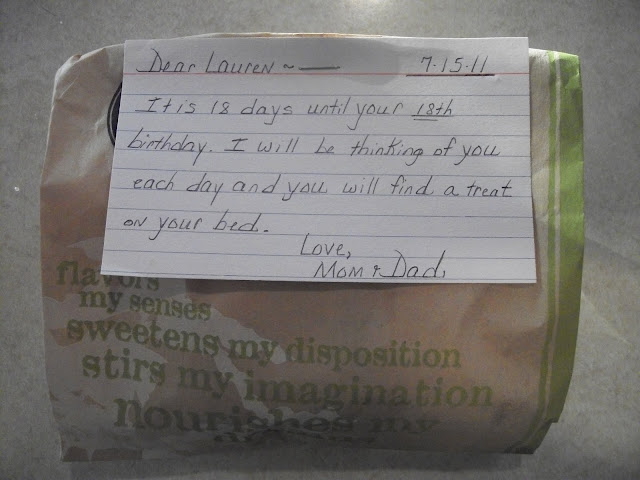 Dear Lauren ~ 7.15.11
It is 18 days until your 18th
birthday. I will be thinking of you
each day and you will find a treat
on your bed.
Love,
Mom & Dad
flavors
my senses
sweetens my disposition
stirs my imagination
nourishes my